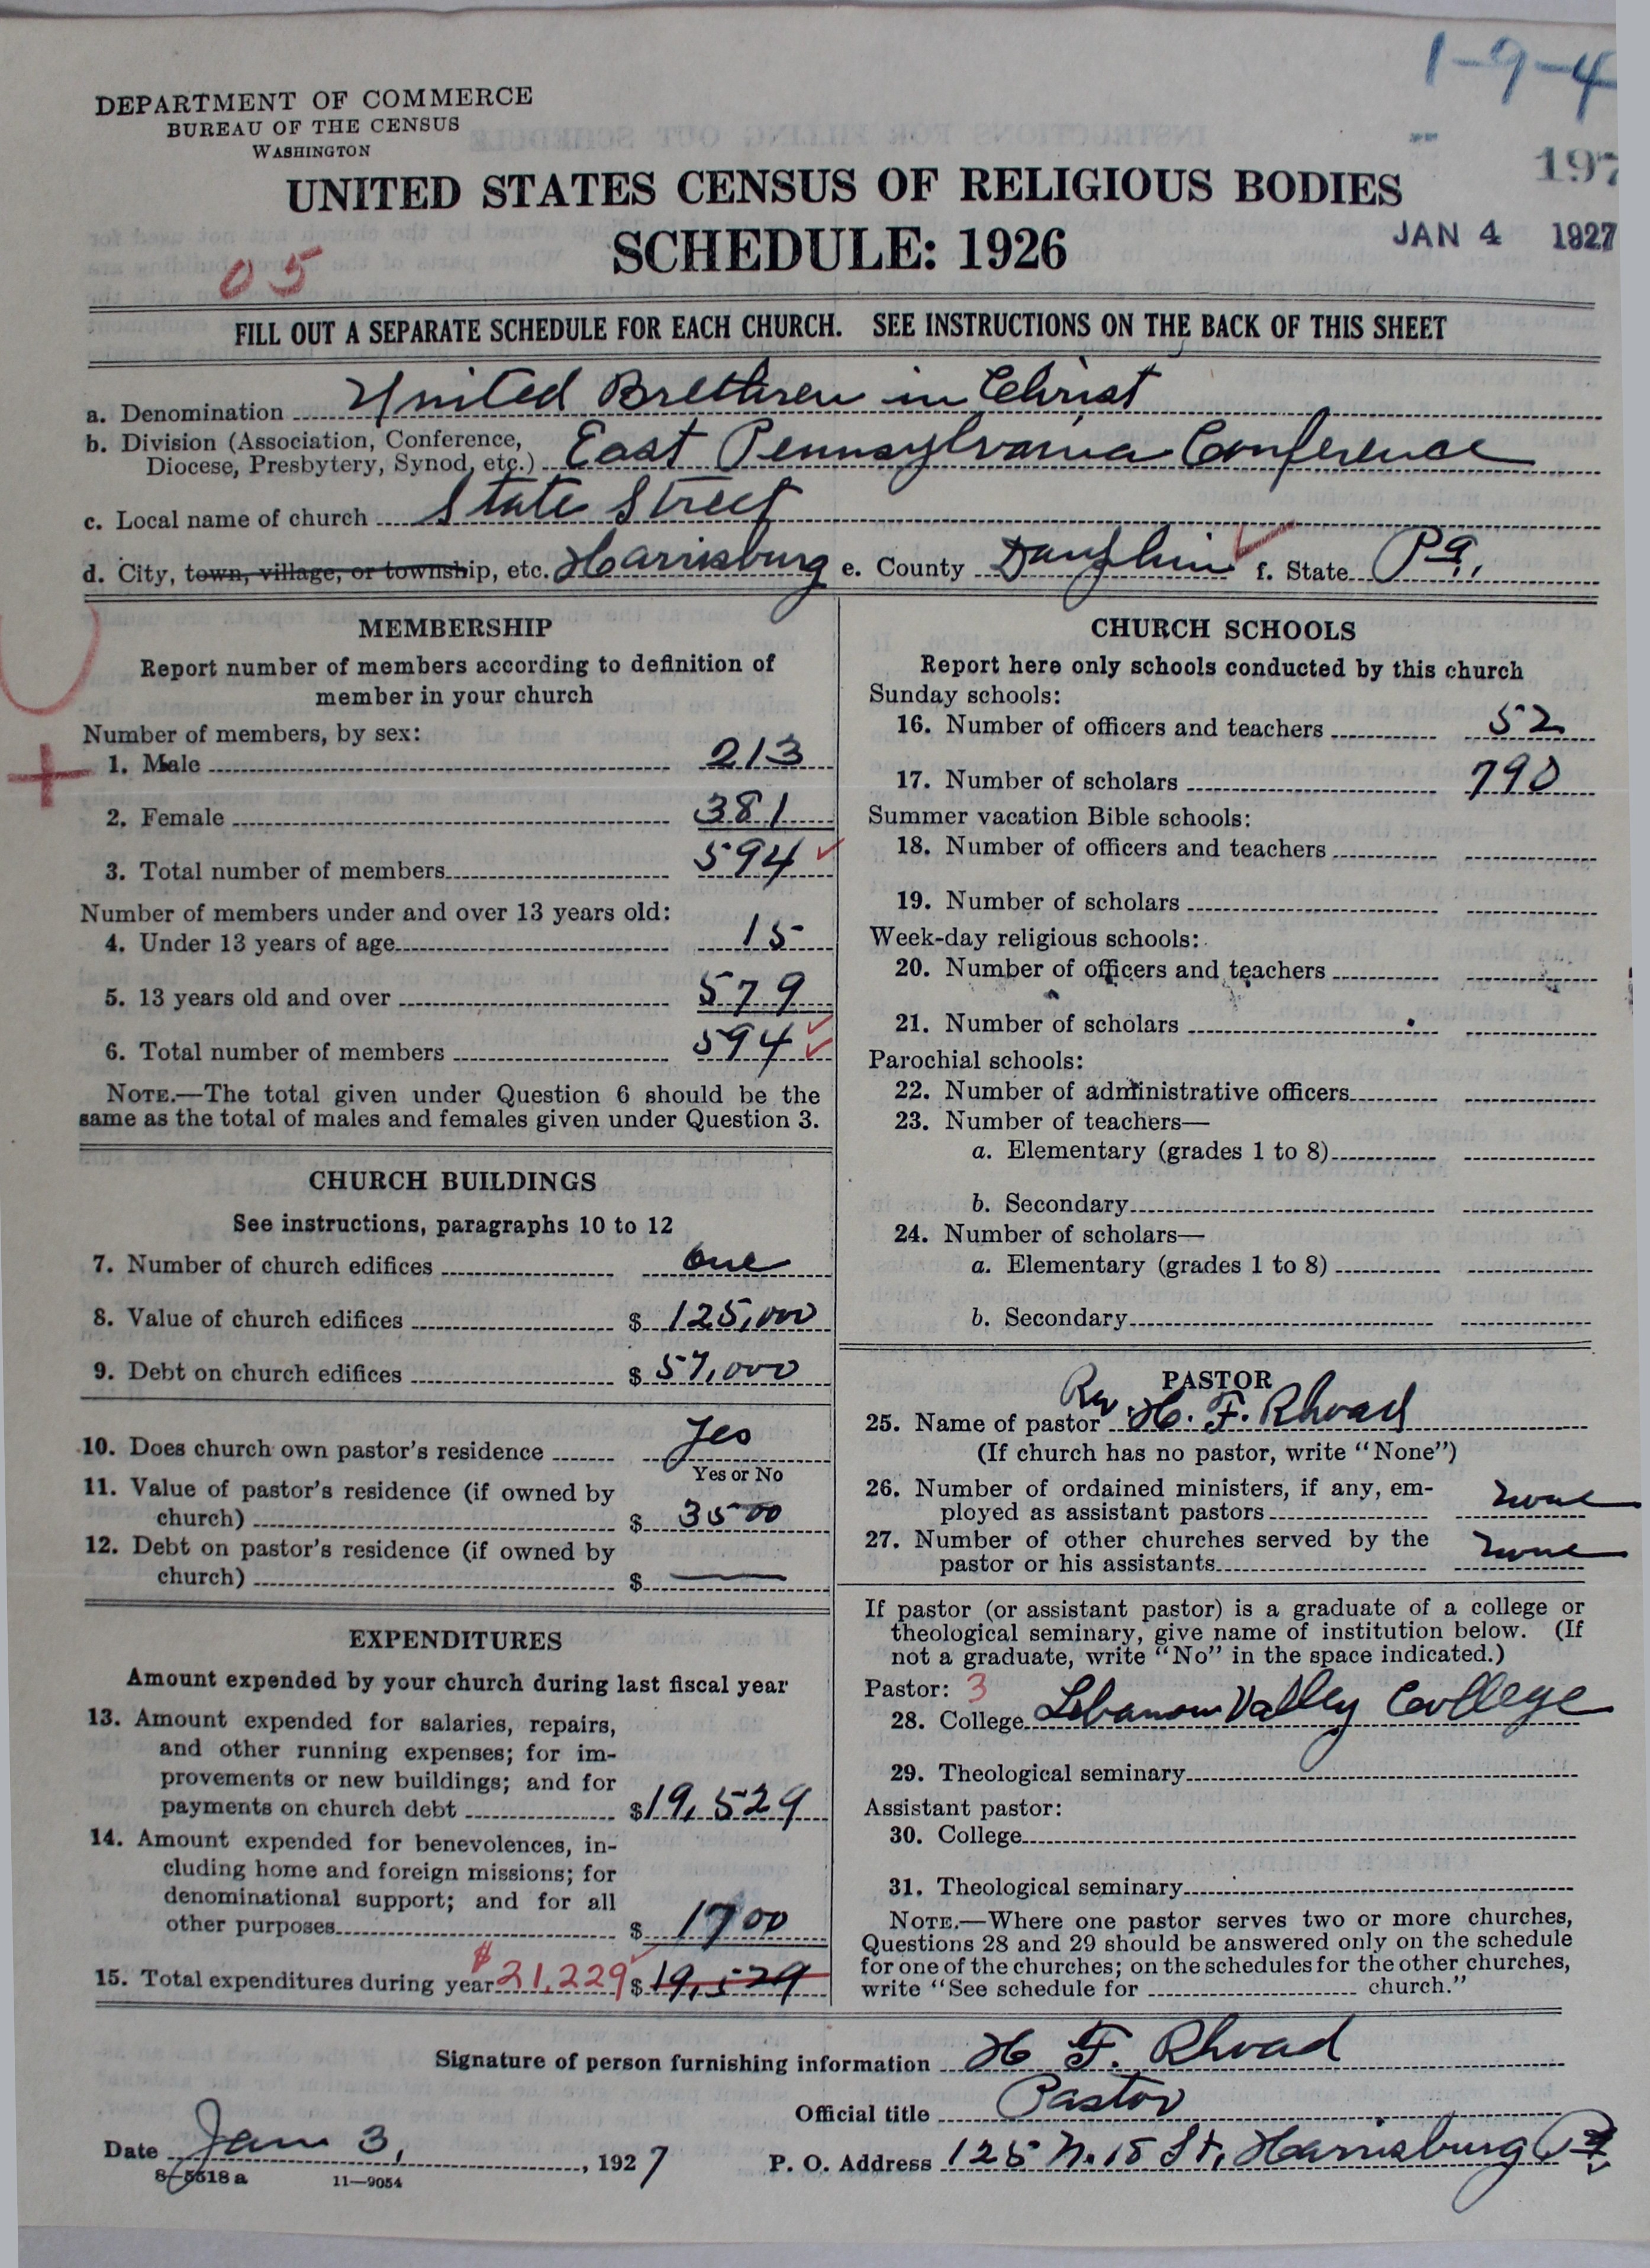 1-9-4
DEPARTMENT OF COMMERCE
BUREAU OF THE CENSUS
WASHINGTON
197
UNITED STATES CENSUS OF RELIGIOUS BODIES
SCHEDULE: 1926
JAN 4 1927
05
FILL OUT A SEPARATE SCHEDULE FOR EACH CHURCH. SEE INSTRUCTIONS ON THE BACK OF THIS SHEET
a. Denomination United Brethren in Christ
b. Division (Association, Conference,
Diocese, Presbytery, Synod, etc.) East Pennsylvania Conference
c. Local name of church State Street
d. City, town, village, or township, etc. Harrisburg e. County Dauphin f. State Pa.
MEMBERSHIP
Report number of members according to definition of
member in your church
Number of members, by sex:
1. Male 213
2. Female 381
3. Total number of members 594
Number of members under and over 13 years old:
4. Under 13 years of age 15
5. 13 years old and over 579
6. Total number of members 594
NOTE.—The total given under Question 6 should be the
same as the total of males and females given under Question 3.
CHURCH BUILDINGS
See instructions, paragraphs 10 to 12
7. Number of church edifices one
8. Value of church edifices $ 125,000
9. Debt on church edifices $ 57,000
10. Does church own pastor's residence Yes
Yes or No
11. Value of pastor's residence (if owned by
church) $ 3500
12. Debt on pastor's residence (if owned by
church) $ —
EXPENDITURES
Amount expended by your church during last fiscal year
13. Amount expended for salaries, repairs,
and other running expenses; for im-
provements or new buildings; and for
payments on church debt $19,529
14. Amount expended for benevolences, in-
cluding home and foreign missions; for
denominational support; and for all
other purposes $ 1700
15. Total expenditures during year $21,229 $ 19,529
CHURCH SCHOOLS
Report here only schools conducted by this church
Sunday schools:
16. Number of officers and teachers 52
17. Number of scholars 790
Summer vacation Bible schools:
18. Number of officers and teachers
19. Number of scholars
Week-day religious schools:
20. Number of officers and teachers
21. Number of scholars
Parochial schools:
22. Number of administrative officers
23. Number of teachers—
a. Elementary (grades 1 to 8)
b. Secondary
24. Number of scholars—
a. Elementary (grades 1 to 8)
b. Secondary
PASTOR
25. Name of pastor Rev. H. F. Rhoad
(If church has no pastor, write "None")
26. Number of ordained ministers, if any, em-
ployed as assistant pastors none
27. Number of other churches served by the
pastor or his assistants none
If pastor (or assistant pastor) is a graduate of a college or
theological seminary, give name of institution below. (If
not a graduate, write "No" in the space indicated.)
Pastor: 3
28. College Lebanon Valley College
29. Theological seminary
Assistant pastor:
30. College
31. Theological seminary
NOTE.—Where one pastor serves two or more churches,
Questions 28 and 29 should be answered only on the schedule
for one of the churches; on the schedules for the other churches,
write "See schedule for church."
Signature of person furnishing information H. F. Rhoad
Official title Pastor
Date Jan 3, 1927 P. O. Address 125 N. 18 St, Harrisburg Pa
8-5518a 11—9054